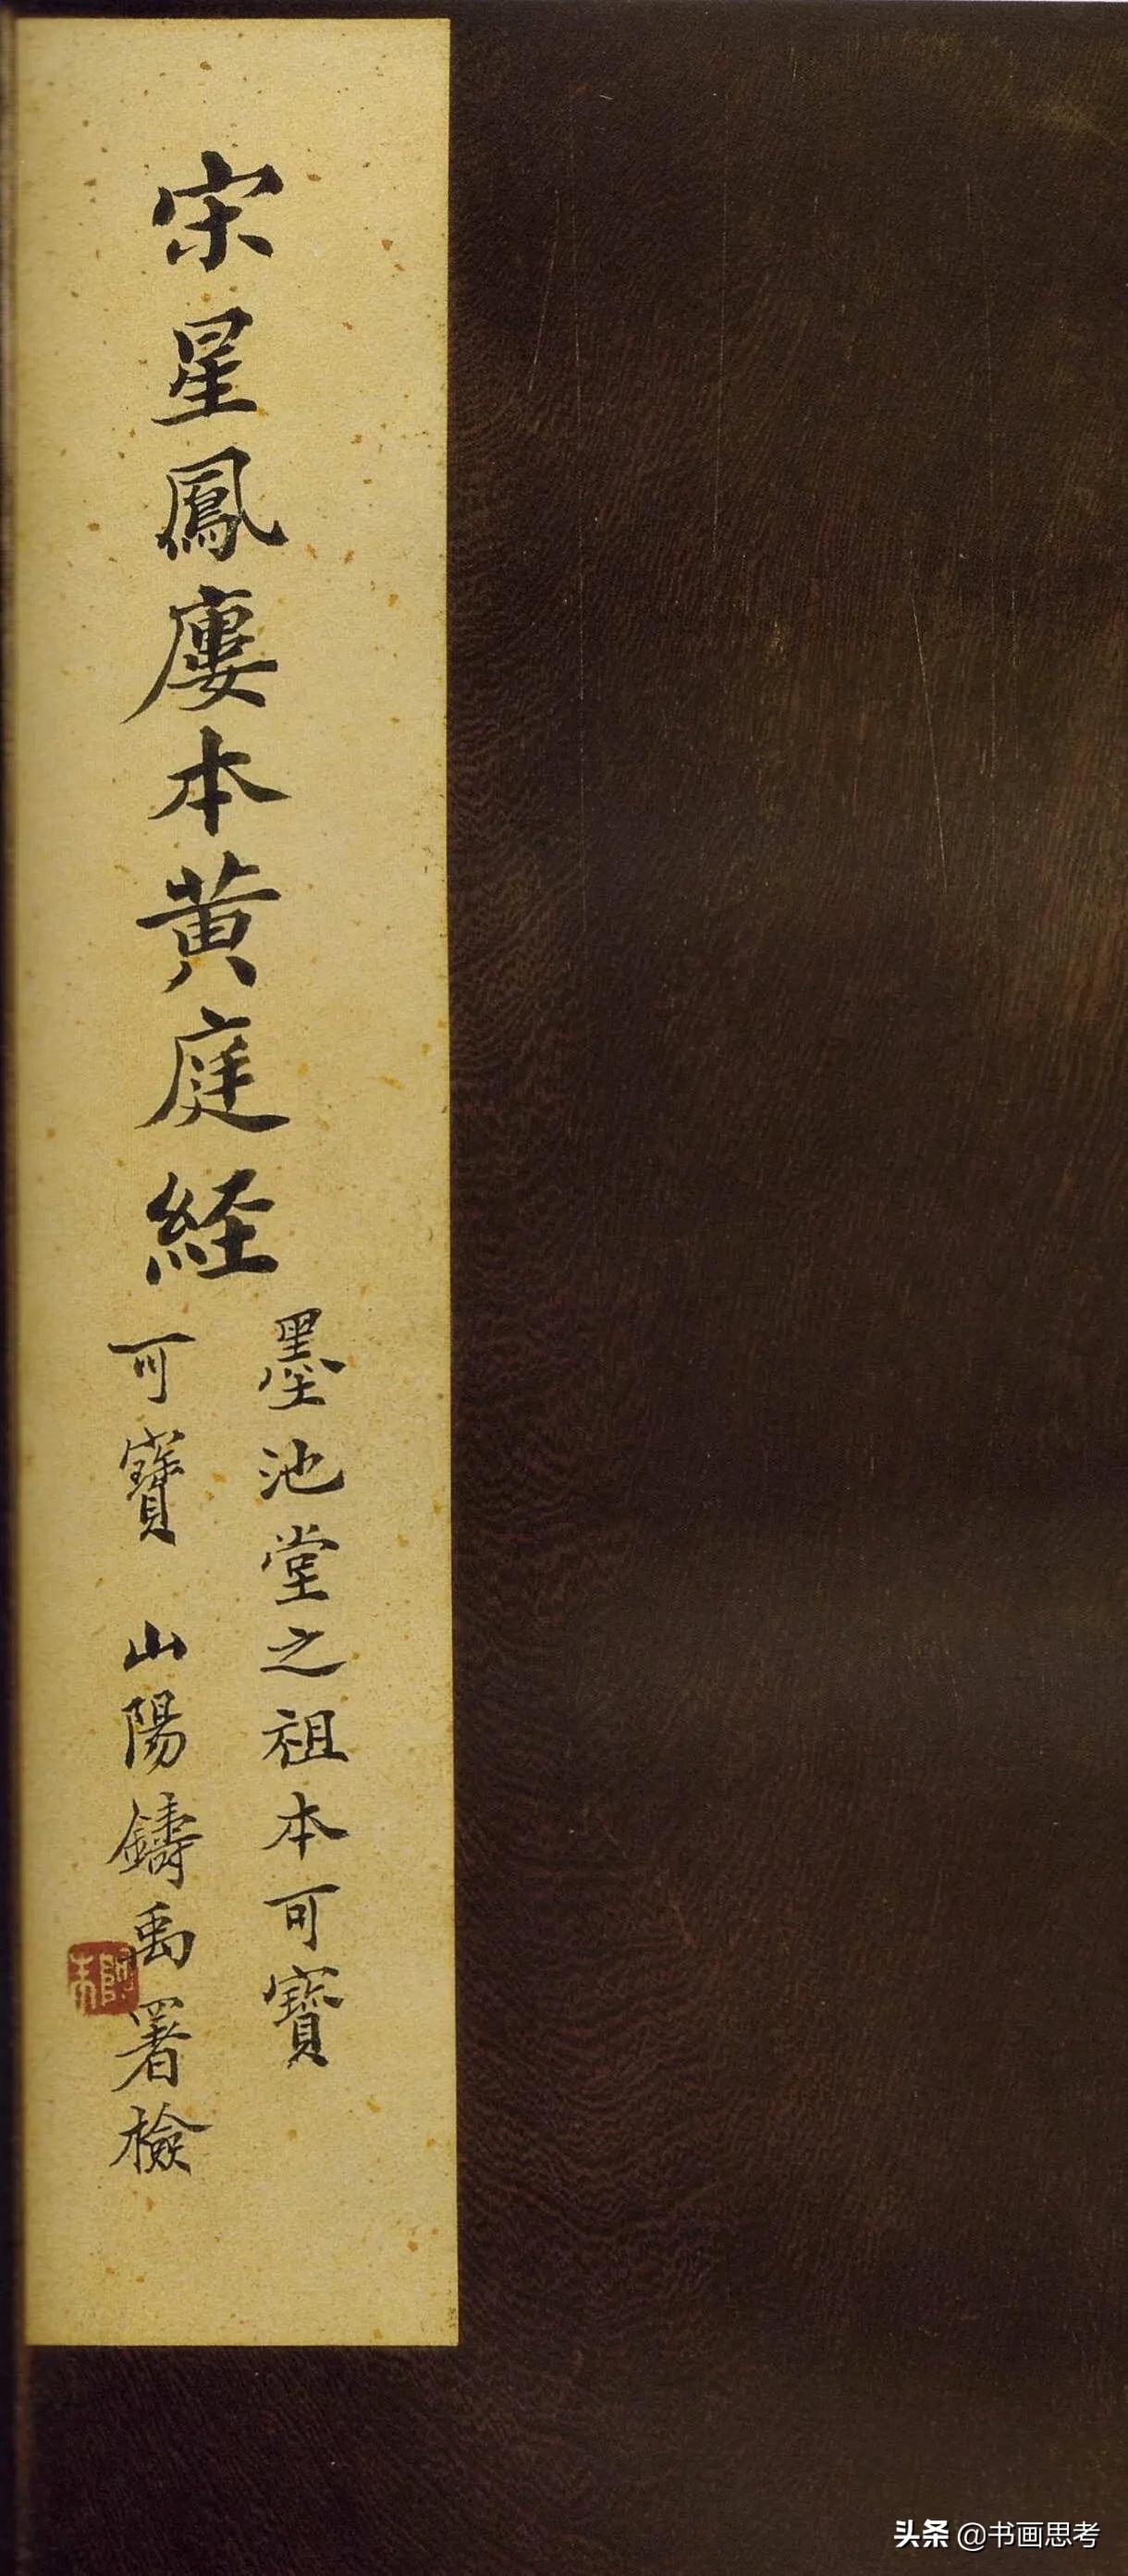 宋星鳳廔本黄庭経
墨池堂之祖本可寶
可寶 山陽鑄禹署檢
头条 @书画思考